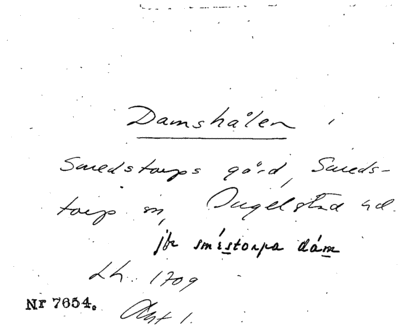 Damshålen i
Smedstorps gård, Smeds-
torp sn, Ingelstad hd.
jbr sméstorpa dám
Lh. 1709
Nr 7654.
Akt 1.